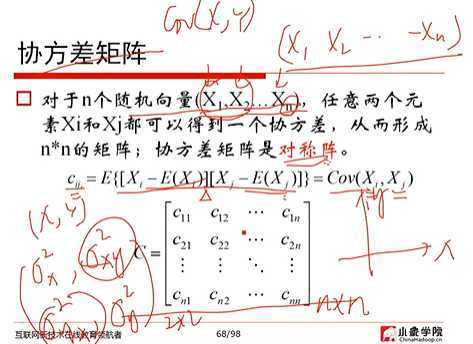 Cov(X, Y)
(X₁ X₂ ⋯ -Xn)
协方差矩阵
对于n个随机向量(X₁,X₂…Xn), 任意两个元
素Xi和Xj都可以得到一个协方差, 从而形成
n*n的矩阵; 协方差矩阵是对称阵。
cᵢⱼ = E{[Xᵢ − E(Xᵢ)][Xⱼ − E(Xⱼ)]} = Cov(Xᵢ, Xⱼ)
(X, Y)
C =
c₁₁ c₁₂ ⋯ c₁ₙ
c₂₁ c₂₂ ⋯ c₂ₙ
⋮ ⋮ ⋱ ⋮
cₙ₁ cₙ₂ ⋯ cₙₙ
X
σ²x σ²xy
n×n
2×2
互联网新技术在线教育领航者
68/98
小象学院
ChinaHadoop.cn